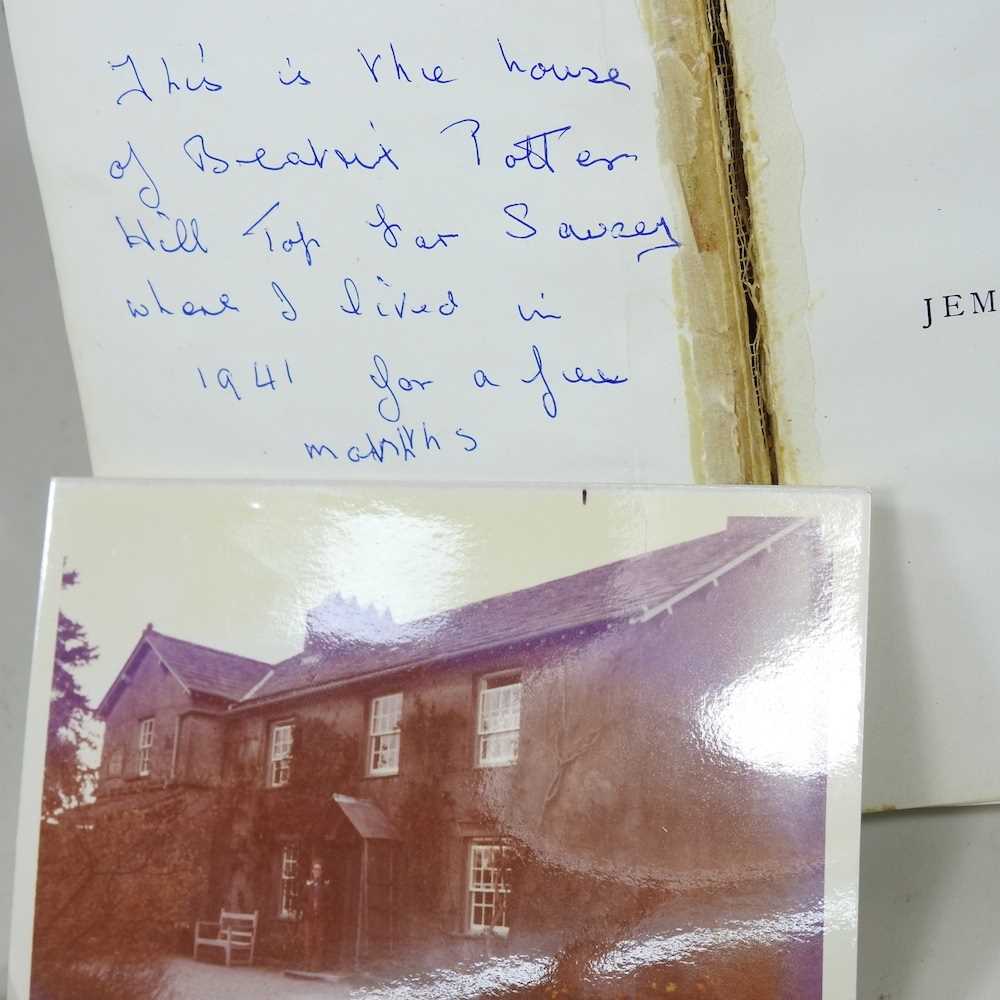 This is the house
of Beatrix Potter
Hill Top far Sawrey
where I lived in
1941 for a few
months
JEM